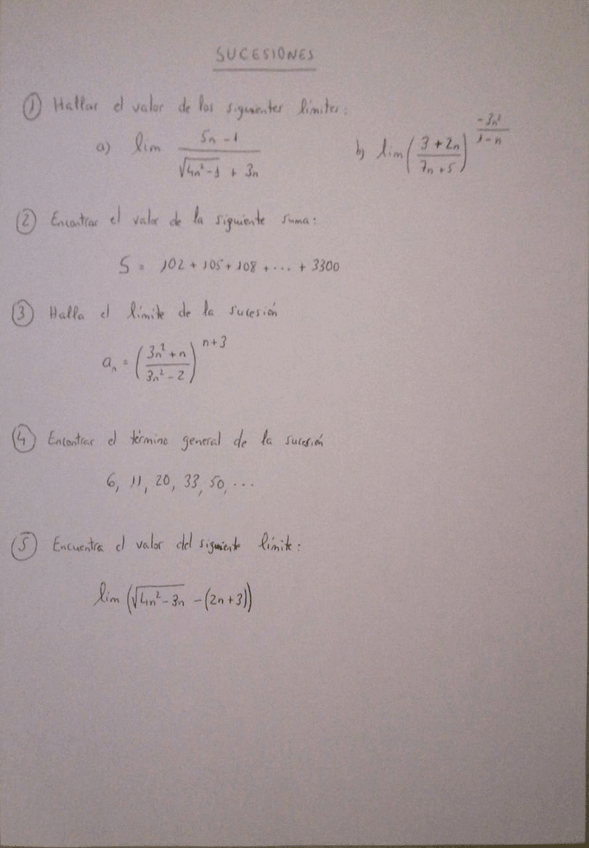 SUCESIONES
① Hallar el valor de los siguientes límites:
a) lim (5n - 1)/(√(4n² - 1) + 3n) b) lim ((3 + 2n)/(7n + 5))^(-3n²/(1 - n))
② Encontrar el valor de la siguiente suma:
S = 102 + 105 + 108 + ... + 3300
③ Halla el límite de la sucesión
aₙ = ((3n² + n)/(3n² - 2))^(n+3)
④ Encontrar el término general de la sucesión
6, 11, 20, 33, 50, ...
⑤ Encuentra el valor del siguiente límite:
lim (√(4n² - 3n) - (2n + 3))